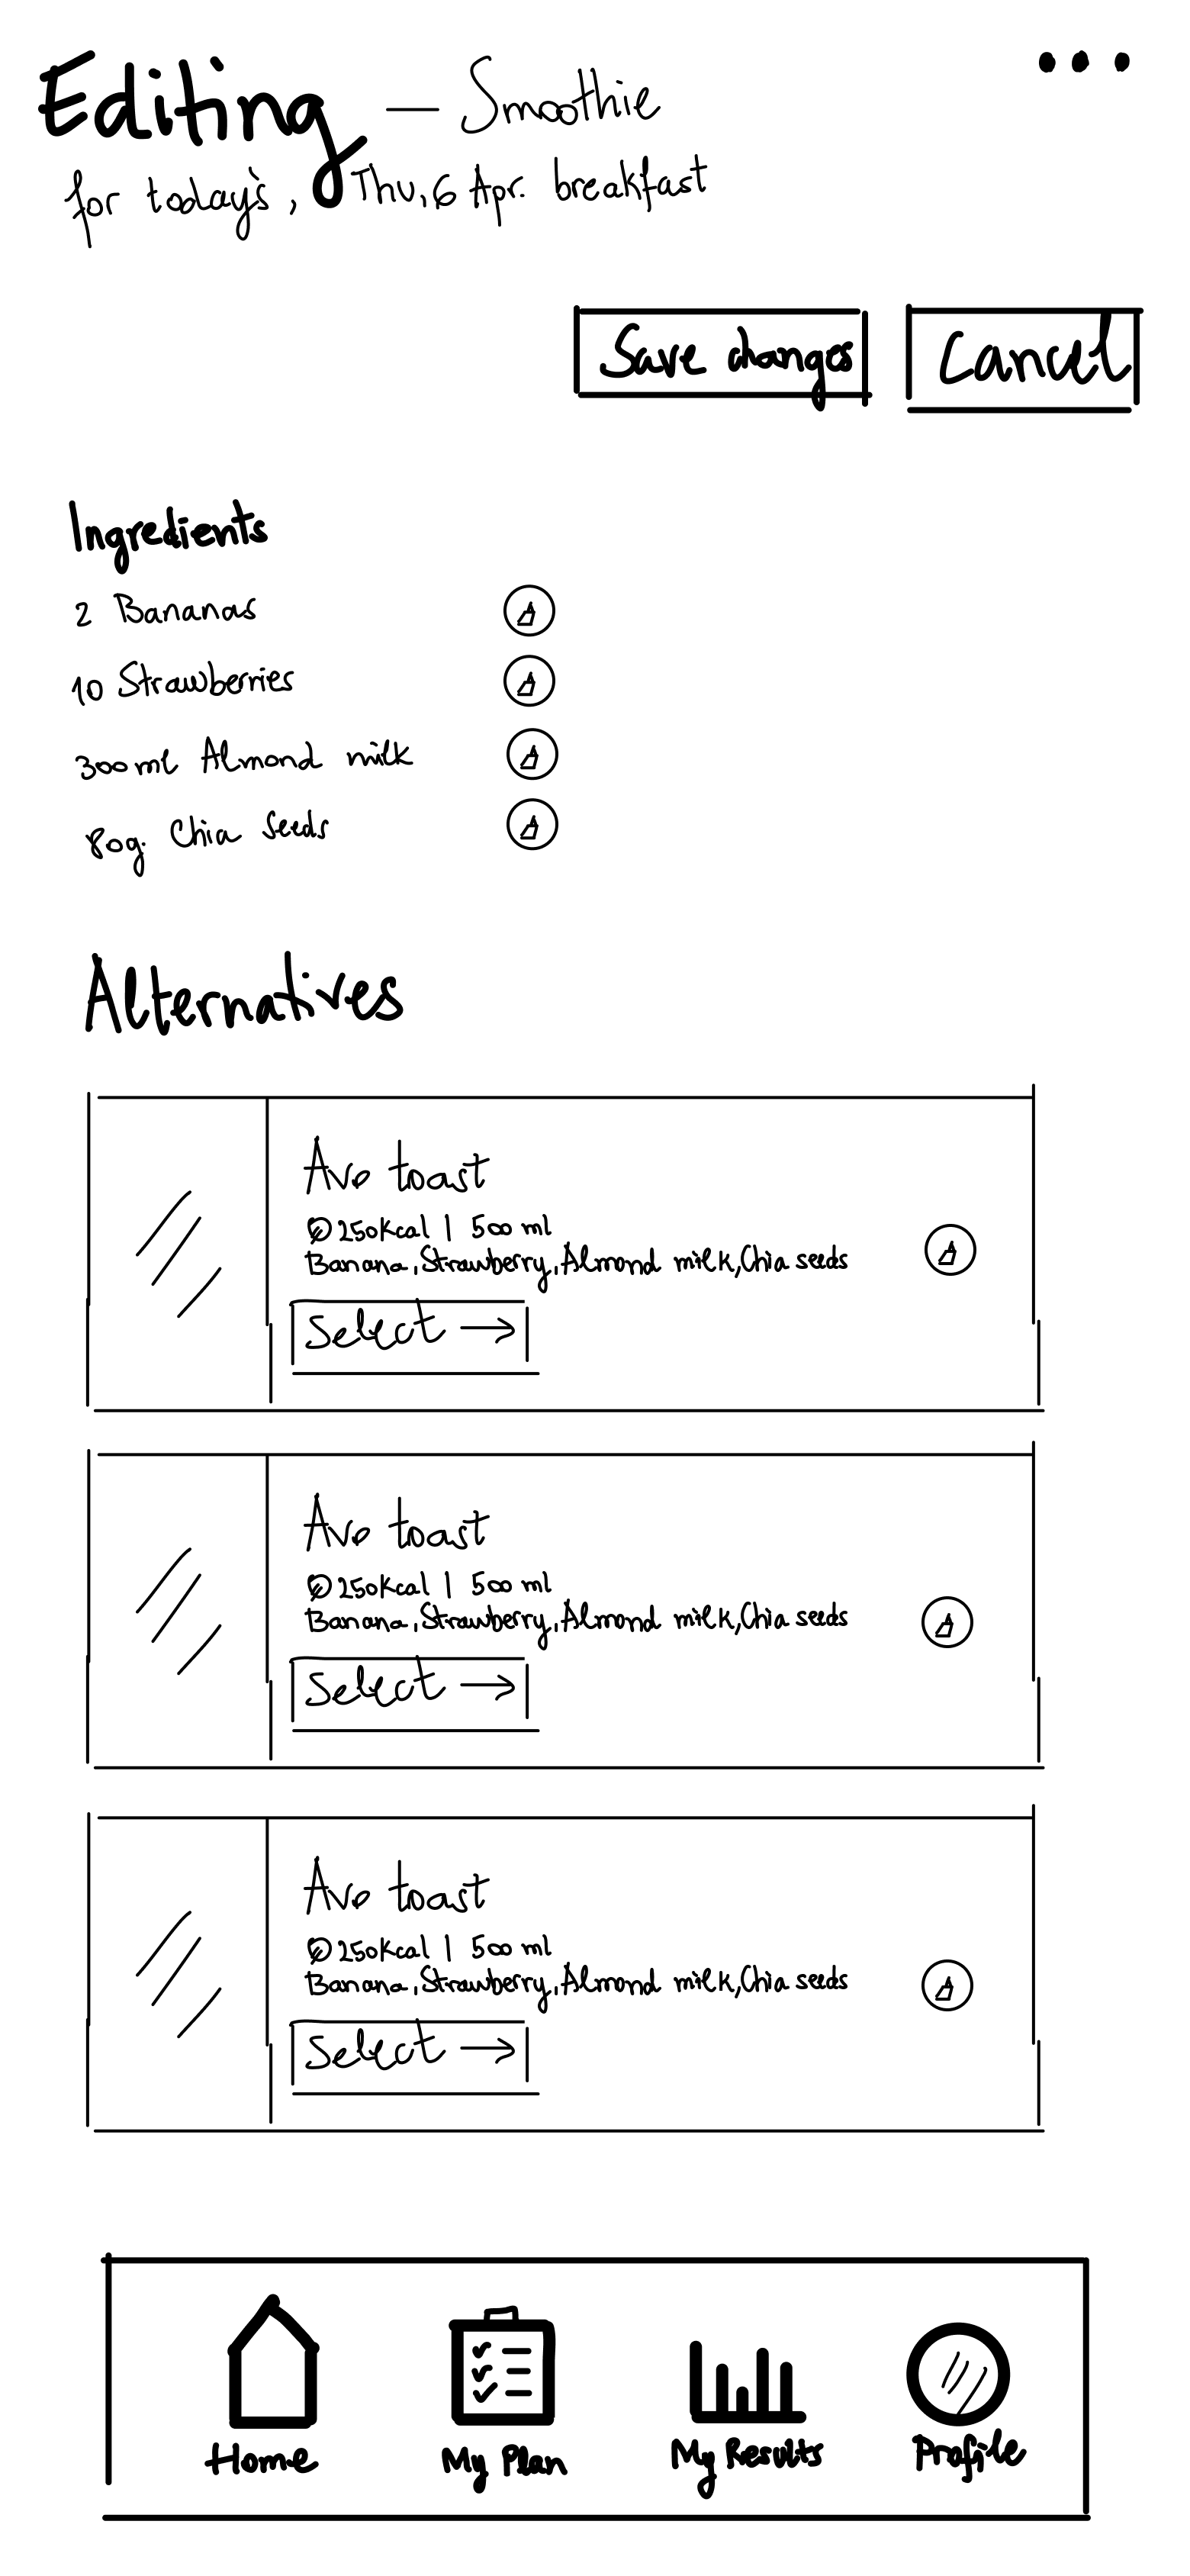 Editing — Smoothie
for today's, Thu, 6 Apr. breakfast
Save changes
Cancel
Ingredients
2 Bananas
10 Strawberries
300 ml Almond milk
80g. Chia seeds
Alternatives
Avo toast
250Kcal | 500 ml
Banana, Strawberry, Almond milk, Chia seeds
Select →
Avo toast
250Kcal | 500 ml
Banana, Strawberry, Almond milk, Chia seeds
Select →
Avo toast
250Kcal | 500 ml
Banana, Strawberry, Almond milk, Chia seeds
Select →
Home
My Plan
My Results
Profile